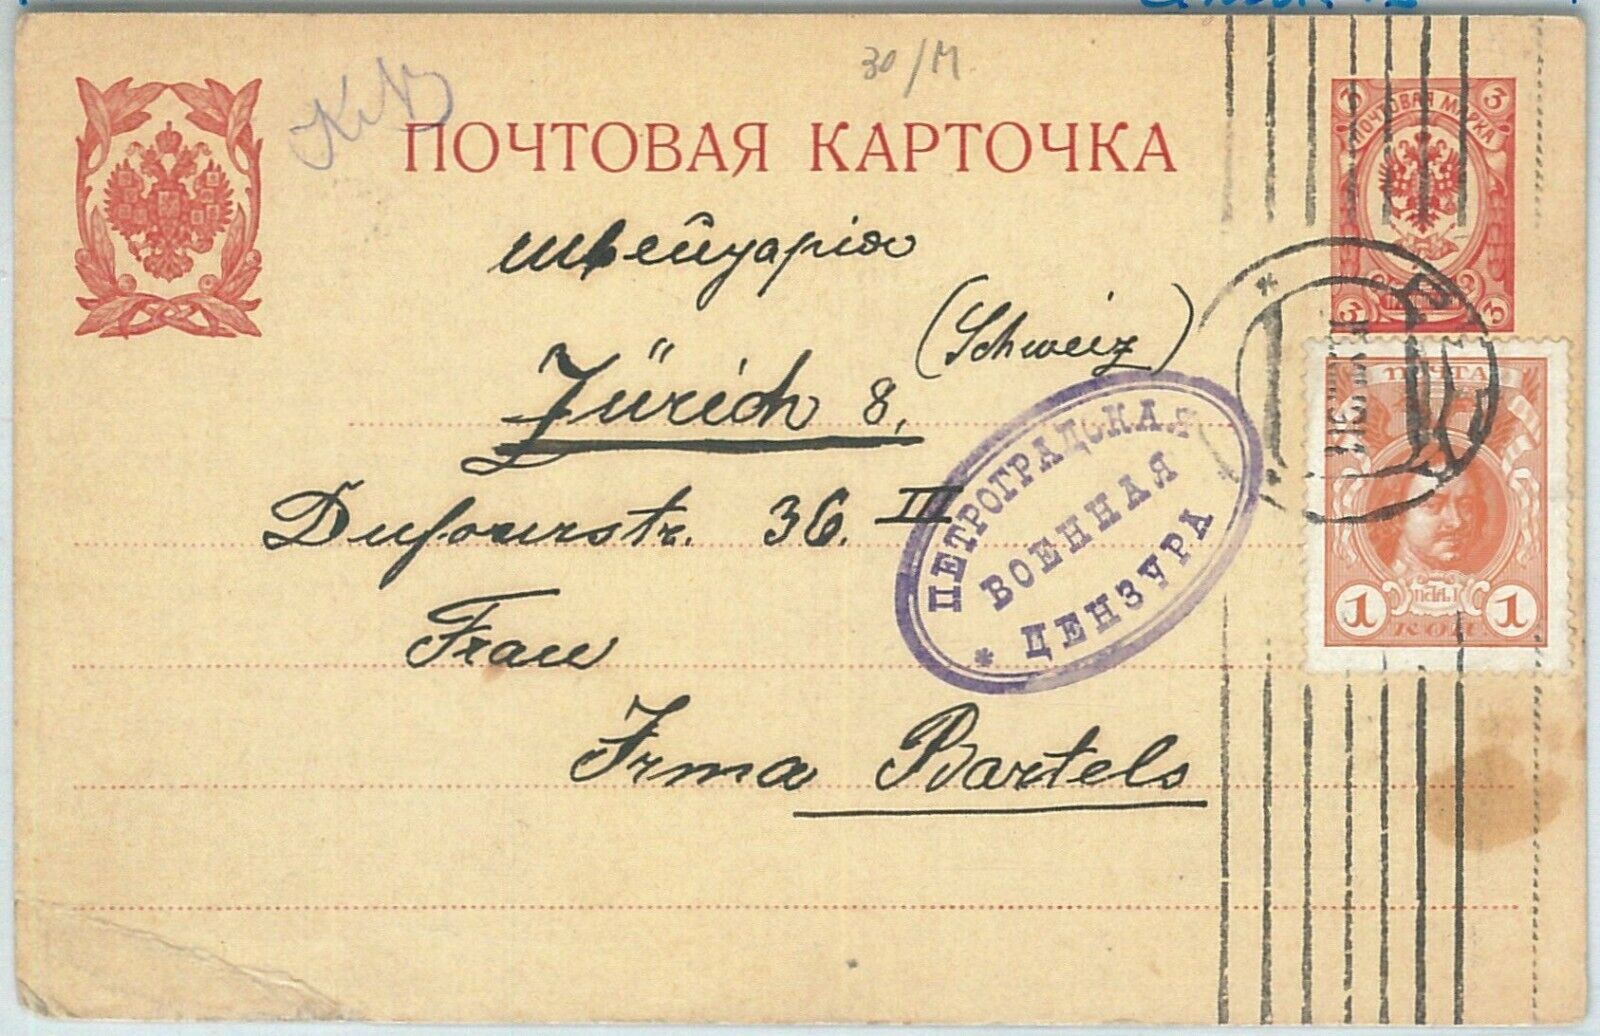 30/М
ПОЧТОВАЯ КАРТОЧКА
3 3
ПОЧТОВАЯ МАРКА
3 3
Швейцарія
(Schweiz)
Zürich 8,
Dufourstr. 36. III
Frau
Irma Bartels
ПЕТРОГРАДСКАЯ
ВОЕННАЯ
ЦЕНЗУРА
ПОЧТА
ПЕТРЪ I
1 1
КОП.